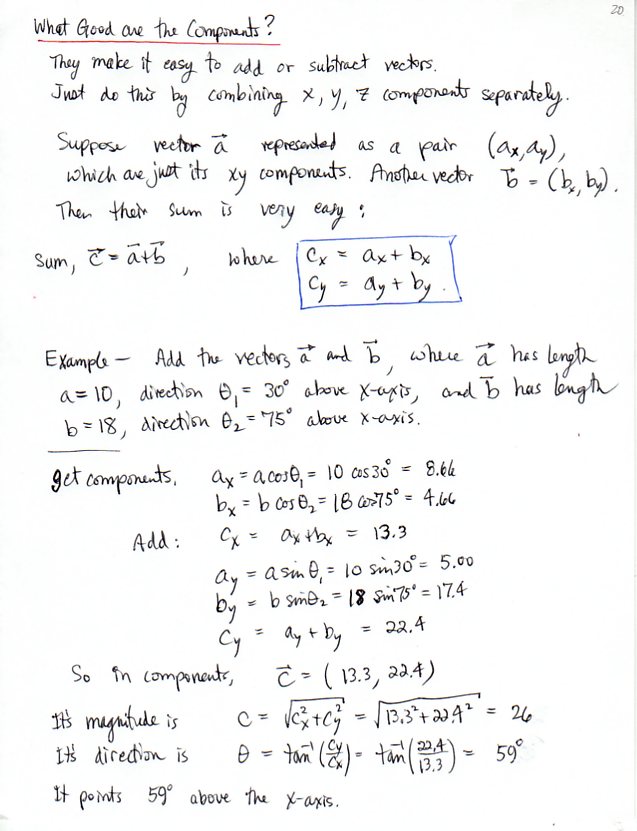 20
What Good are the Components?
They make it easy to add or subtract vectors.
Just do this by combining x, y, z components separately.
Suppose vector a⃗ represented as a pair (aₓ, a_y),
which are just its xy components. Another vector b⃗ = (bₓ, b_y).
Then their sum is very easy:
Sum, c⃗ = a⃗+b⃗, where cₓ = aₓ + bₓ
c_y = a_y + b_y.
Example – Add the vectors a⃗ and b⃗, where a⃗ has length
a = 10, direction θ₁ = 30° above x-axis, and b⃗ has length
b = 18, direction θ₂ = 75° above x-axis.
get components. aₓ = a cosθ₁ = 10 cos 30° = 8.66
bₓ = b cosθ₂ = 18 cos 75° = 4.66
Add: cₓ = aₓ + bₓ = 13.3
a_y = a sin θ₁ = 10 sin 30° = 5.00
b_y = b sinθ₂ = 18 sin 75° = 17.4
c_y = a_y + b_y = 22.4
So in components, c⃗ = (13.3, 22.4)
It's magnitude is c = √(cₓ² + c_y²) = √(13.3² + 22.4²) = 26
It's direction is θ = tan⁻¹(c_y/cₓ) = tan⁻¹(22.4/13.3) = 59°
It points 59° above the x-axis.